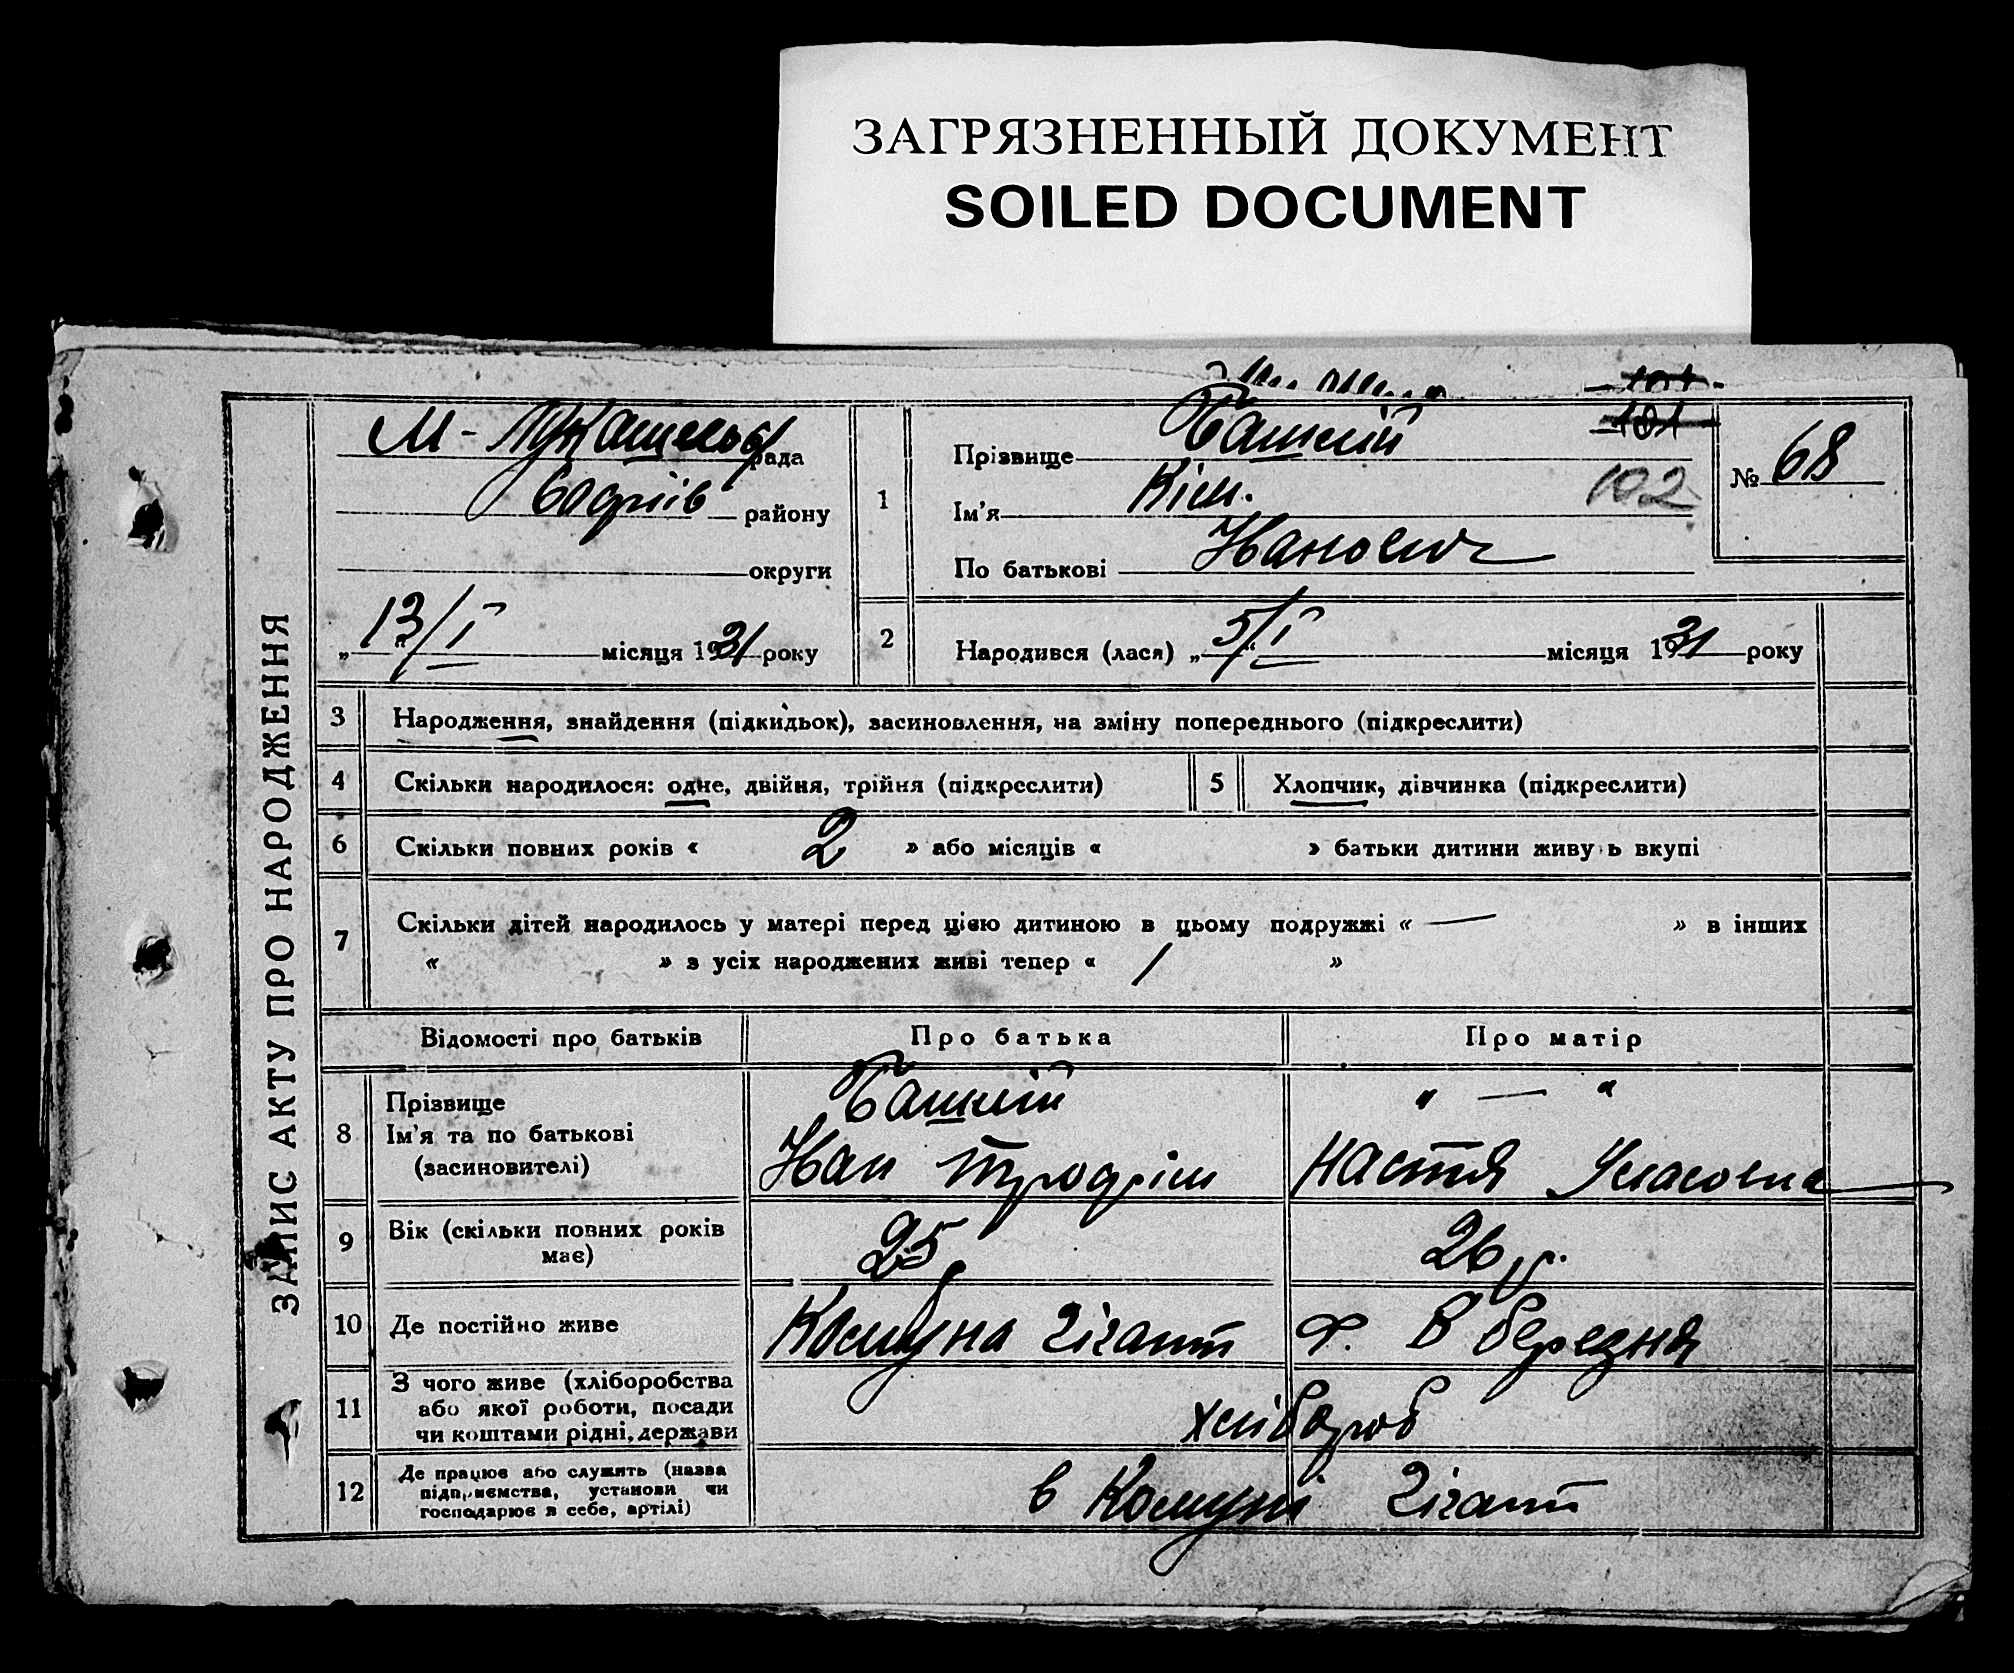 ЗАГРЯЗНЕННЫЙ ДОКУМЕНТ
SOILED DOCUMENT
ЗАПИС АКТУ ПРО НАРОДЖЕННЯ
М - рада
району
округи
„13/I“ місяця 1931 року
1
Прізвище
101
Ім'я Кім.
102
По батькові
№ 68
2 Народився (лася) „5/I“ місяця 1931 року
3 Народження, знайдення (підкидьок), засиновлення, на зміну попереднього (підкреслити)
4 Скільки народилося: одне, двійня, трійня (підкреслити) 5 Хлопчик, дівчинка (підкреслити)
6 Скільки повних років « 2 » або місяців « » батьки дитини живуть вкупі
7 Скільки дітей народилось у матері перед цією дитиною в цьому подружжі « — » в інших
« » з усіх народжених живі тепер « 1 »
Відомості про батьків Про батька Про матір
8 Прізвище „ — “
Ім'я та по батькові
(засиновителі) Іван Настя
9 Вік (скільки повних років має) 25 26 р.
10 Де постійно живе Комуна Гігант 8 березня
11 З чого живе (хліборобства
або якої роботи, посади
чи коштами рідні, держави хлібороб
12 Де працює або служить (назва
підприємства, установи чи
господарює в себе, артілі) в Комуні Гігант